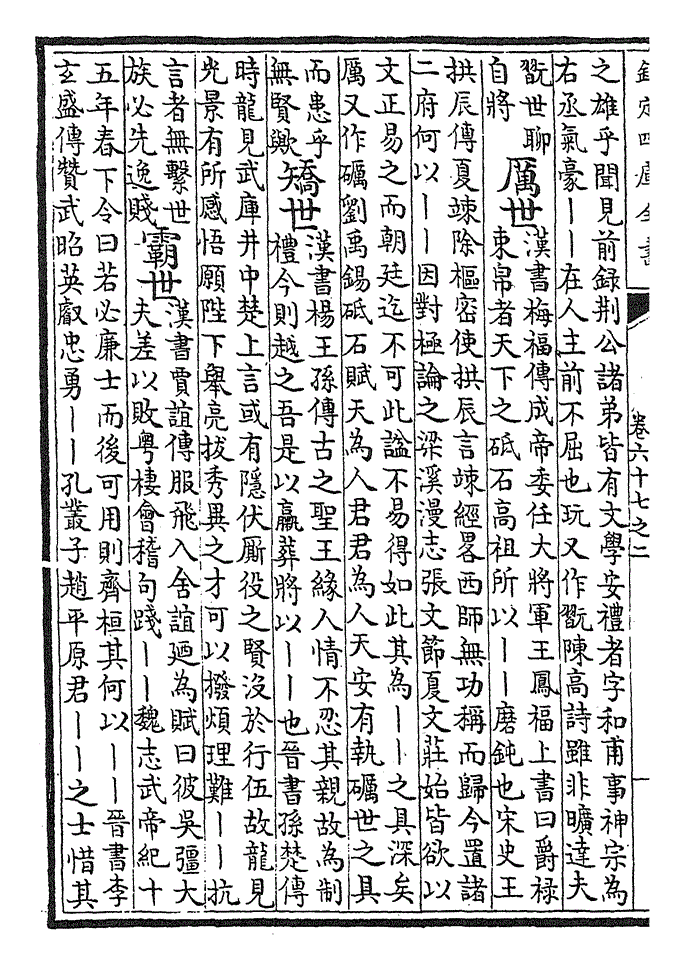 欽定四庫全書 卷六十七之二 一
之雄乎聞見前録荆公諸弟皆有文學安禮者字和甫事神宗為
右丞氣豪丨丨在人主前不屈也玩又作翫陳高詩雖非曠達夫
翫世聊
自將
厲世
漢書梅福傳成帝委任大將軍王鳳福上書曰爵禄
束帛者天下之砥石高祖所以丨丨磨鈍也宋史王
拱辰傳夏竦除樞密使拱辰言竦經畧西師無功稱而歸今置諸
二府何以丨丨因對極論之梁溪漫志張文節夏文莊始皆欲以
文正易之而朝廷迄不可此諡不易得如此其為丨丨之具深矣
厲又作礪劉禹錫砥石賦天為人君君為人天安有執礪世之具
而患乎
無賢歟
矯世
漢書楊王孫傳古之聖王緣人情不忍其親故為制
禮今則越之吾是以臝葬將以丨丨也晉書孫楚傳
時龍見武庫井中楚上言或有隱伏厮役之賢沒於行伍故龍見
光景有所感悟願陛下舉亮拔秀異之才可以撥煩理難丨丨抗
言者無繫世
族必先逸賤
霸世
漢書賈誼傳服飛入舍誼廼為賦曰彼吳彊大
夫差以敗粤棲會稽句踐丨丨魏志武帝紀十
五年春下令曰若必廉士而後可用則齊桓其何以丨丨晉書李
玄盛傳贊武昭英叡忠勇丨丨孔叢子趙平原君丨丨之士惜其